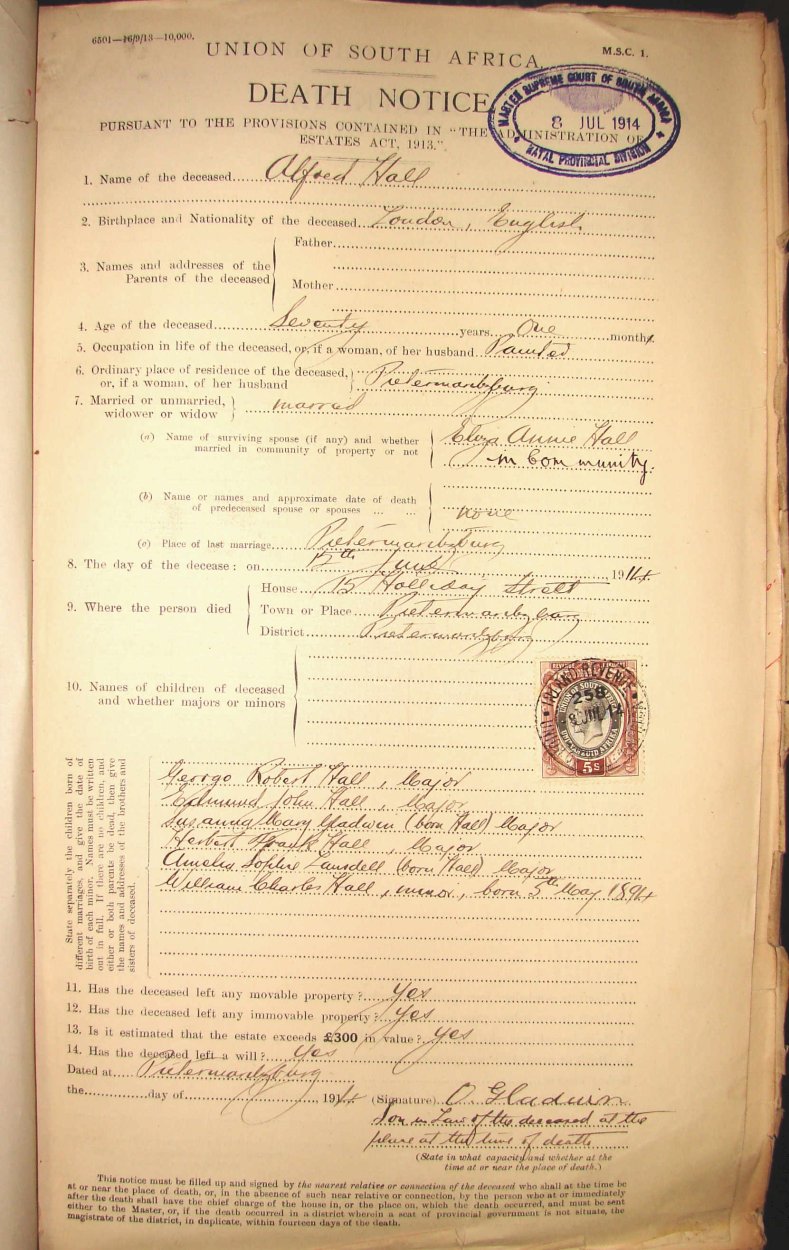 6501—16/9/13—10,000.
M.S.C. 1.
UNION OF SOUTH AFRICA.
DEATH NOTICE
MASTER SUPREME COURT OF SOUTH AFRICA
8 JUL 1914
NATAL PROVINCIAL DIVISION
PURSUANT TO THE PROVISIONS CONTAINED IN "THE ADMINISTRATION OF
ESTATES ACT, 1913."
1. Name of the deceased Alfred Hall
2. Birthplace and Nationality of the deceased London, English
3. Names and addresses of the Parents of the deceased
Father
Mother
4. Age of the deceased Seventy years One month
5. Occupation in life of the deceased, or, if a woman, of her husband
6. Ordinary place of residence of the deceased,
or, if a woman, of her husband Pietermaritzburg
7. Married or unmarried,
widower or widow married
(a) Name of surviving spouse (if any) and whether
married in community of property or not
Eliza Annie Hall
in Community.
(b) Name or names and approximate date of death
of predeceased spouse or spouses ... ...
none
(c) Place of last marriage Pietermaritzburg
8. The day of the decease: on 15th June 1914
9. Where the person died
House 15 Holliday Street
Town or Place Pietermaritzburg
District Pietermaritzburg
10. Names of children of deceased
and whether majors or minors
REVENUE
INLAND REVENUE
258
8 JUL 14
5s
State separately the children born of
different marriages, and give the date of
birth of each minor. Names must be written
out in full. If there are no children, and
either or both parents be dead, then give
the names and addresses of the brothers and
sisters of deceased.
George Robert Hall, Major
Edmund John Hall, Major
Susanna Mary Gladwin (born Hall) Major
Herbert Frank Hall, Major
Amelia Sophie Lansdell (born Hall) Major
William Charles Hall, minor, born 5th May 1894
11. Has the deceased left any movable property? Yes
12. Has the deceased left any immovable property? Yes
13. Is it estimated that the estate exceeds £300 in value? Yes
14. Has the deceased left a will? Yes
Dated at Pietermaritzburg
the day of 1914
(Signature) O. Gladwin
Son in Law of the deceased at the
place at the time of death
(State in what capacity and whether at the
time at or near the place of death.)
This notice must be filled up and signed by the nearest relative or connection of the deceased who shall at the time be
at or near the place of death, or, in the absence of such near relative or connection, by the person who at or immediately
after the death shall have the chief charge of the house in, or the place on, which the death occurred, and must be sent
either to the Master, or, if the death occurred in a district wherein a seat of provincial government is not situate, the
magistrate of the district, in duplicate, within fourteen days of the death.